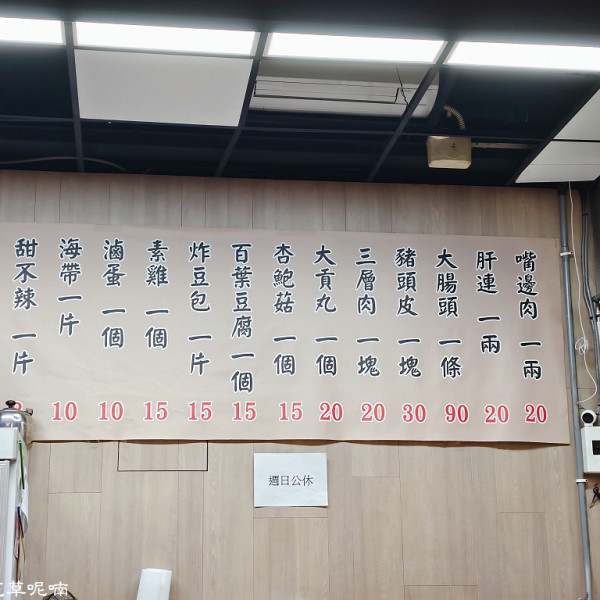 嘴邊肉 一兩 20
肝連 一兩 20
大腸頭 一條 90
豬頭皮 一塊 30
三層肉 一塊 20
大貢丸 一個 20
杏鮑菇 一個 15
百葉豆腐 一個 15
炸豆包 一片 15
素雞 一個 15
滷蛋 一個 10
海帶 一片 10
甜不辣 一片
週日公休
草呢喃